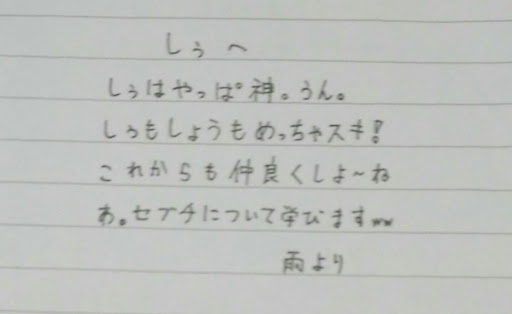 しぅへ
しぅはやっぱ神。うん。
しぅもしょうもめっちゃスキ!
これからも仲良くしよ〜ね
あ。セブチについて学びますww
雨より